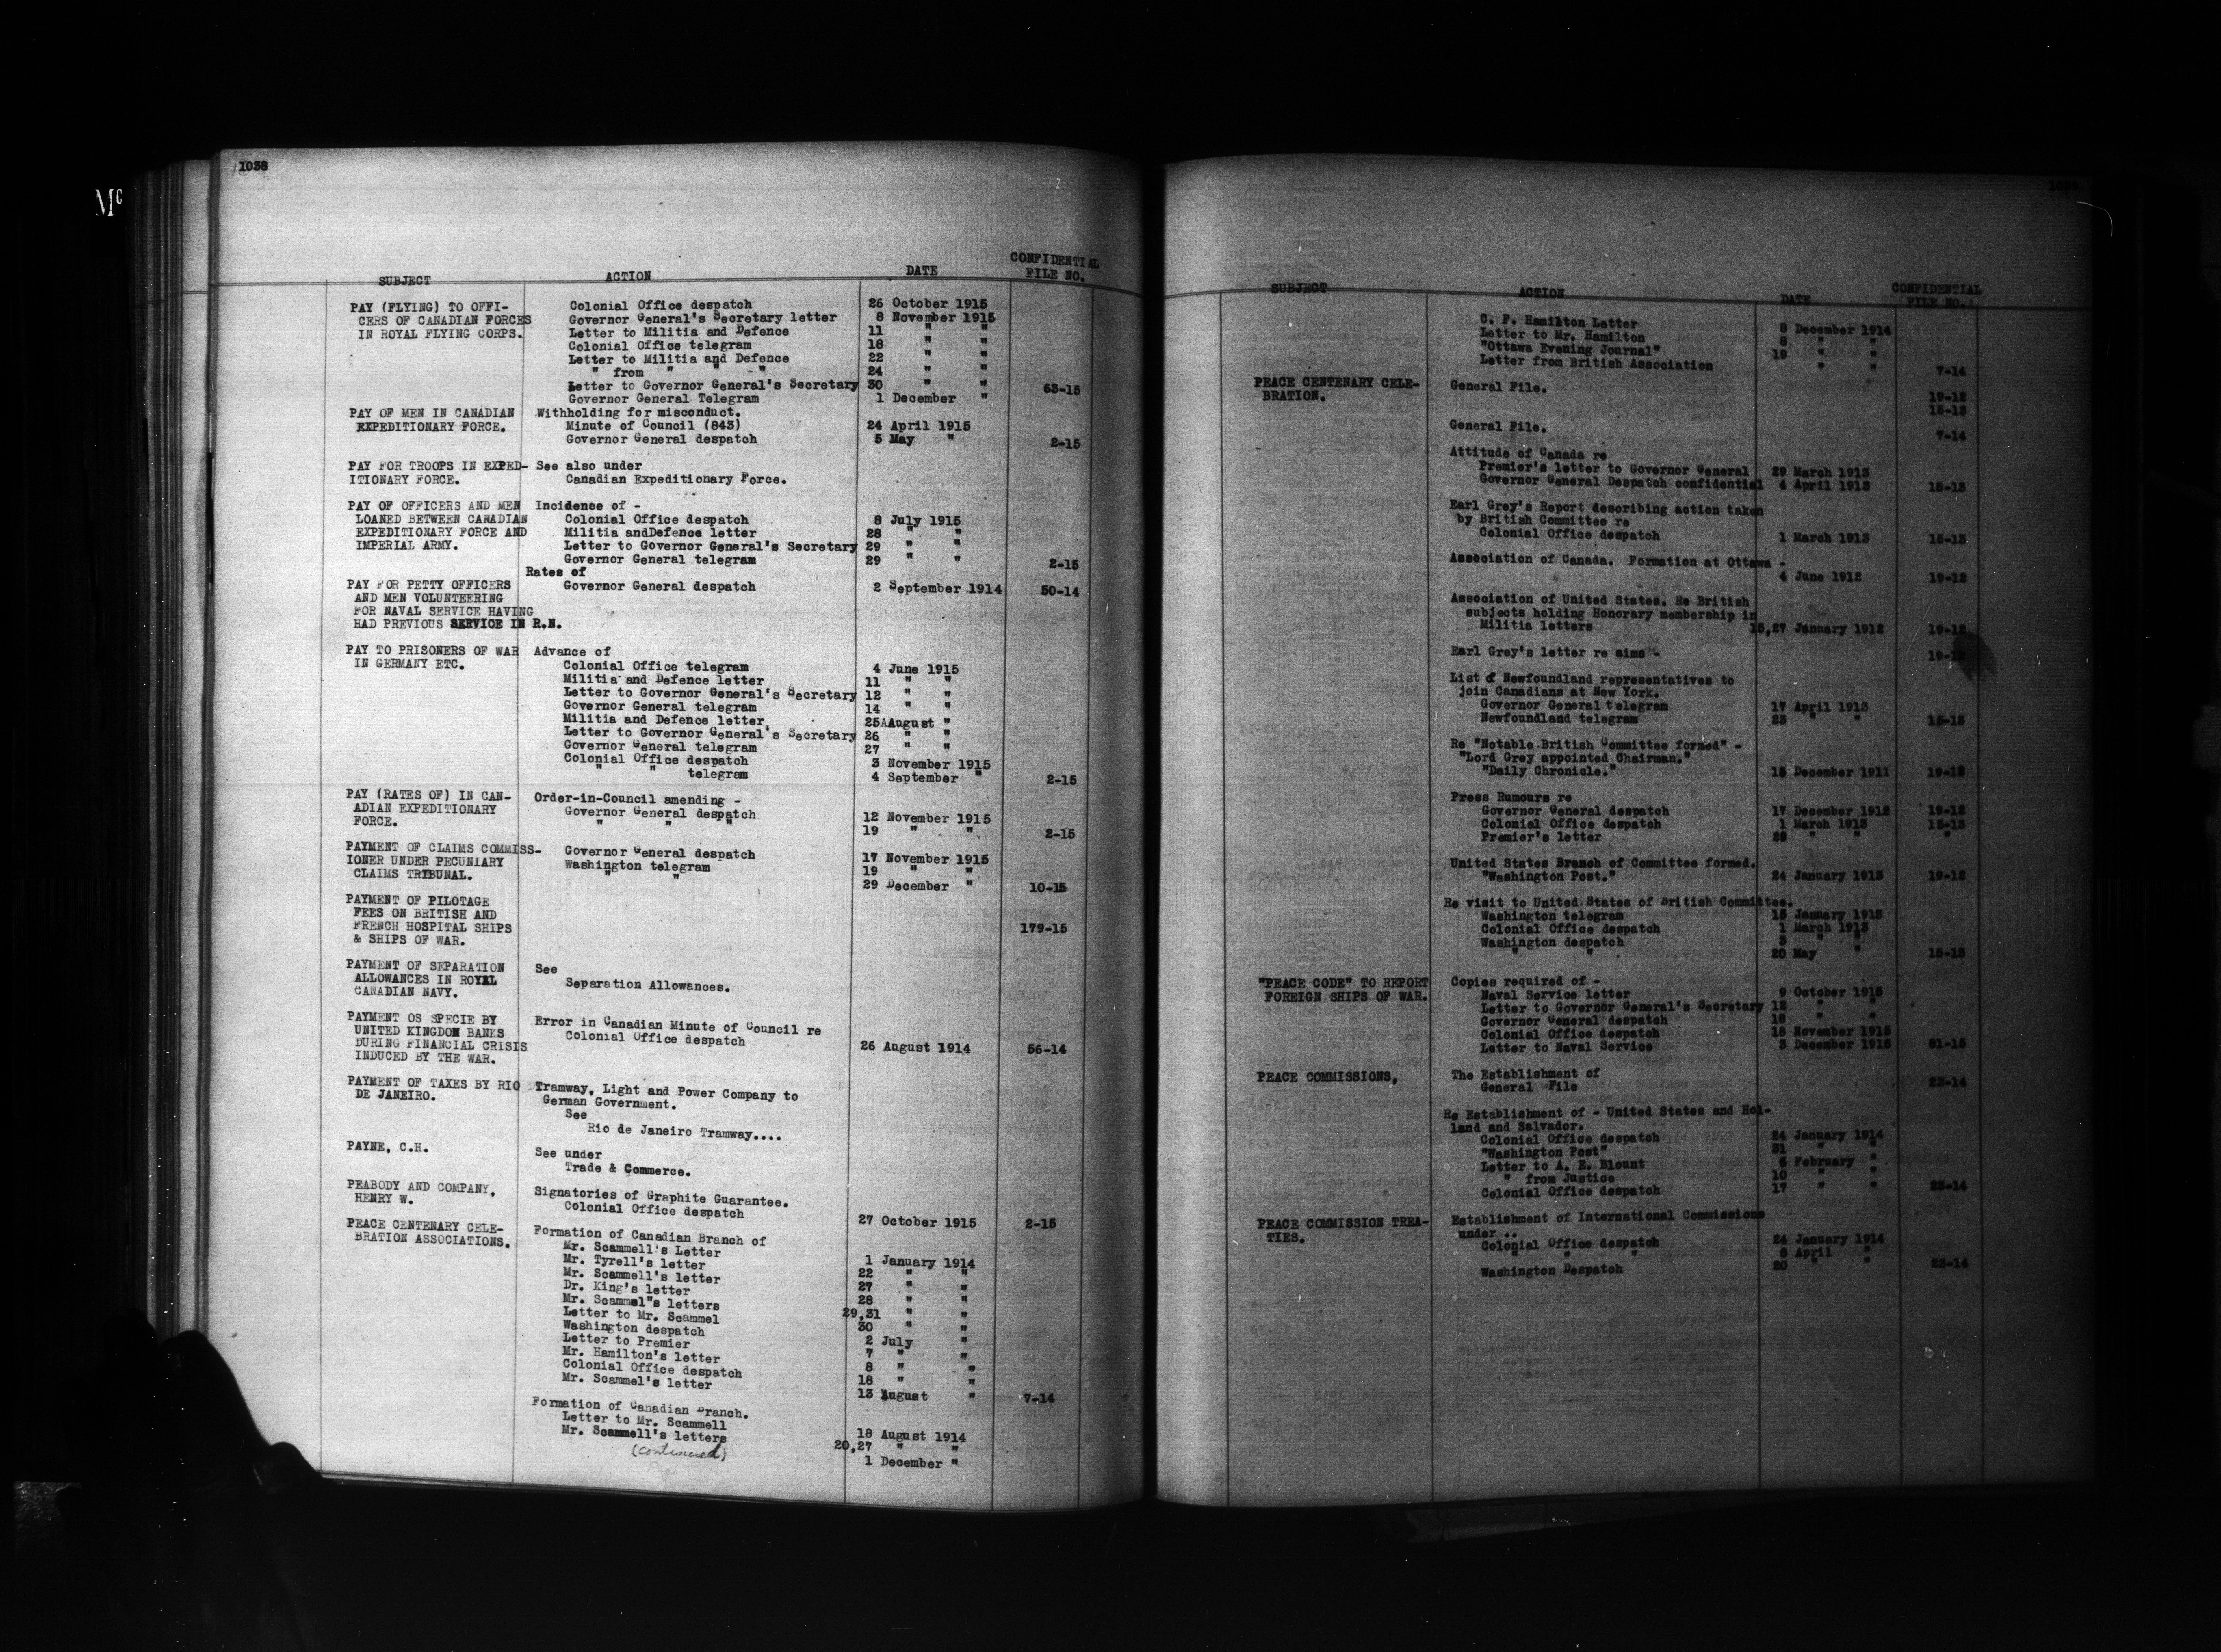 Mc
1038
SUBJECT ACTION DATE CONFIDENTIAL FILE NO.
PAY (FLYING) TO OFFI- Colonial Office despatch 26 October 1915
CERS OF CANADIAN FORCES Governor General's Secretary letter 8 November 1915
IN ROYAL FLYING CORPS. Letter to Militia and Defence 11 " "
Colonial Office telegram 18 " "
Letter to Militia and Defence 22 " "
" from " " " 24 " "
Letter to Governor General's Secretary 30 " "
Governor General Telegram 1 December " 63-15
PAY OF MEN IN CANADIAN Withholding for misconduct.
EXPEDITIONARY FORCE. Minute of Council (843) 24 April 1915
Governor General despatch 5 May " 2-15
PAY FOR TROOPS IN EXPED- See also under
ITIONARY FORCE. Canadian Expeditionary Force.
PAY OF OFFICERS AND MEN Incidence of -
LOANED BETWEEN CANADIAN Colonial Office despatch 8 July 1915
EXPEDITIONARY FORCE AND Militia andDefence letter 28 " "
IMPERIAL ARMY. Letter to Governor General's Secretary 29 " "
Governor General telegram 29 " " 2-15
Rates of
PAY FOR PETTY OFFICERS Governor General despatch 2 September 1914 50-14
AND MEN VOLUNTEERING
FOR NAVAL SERVICE HAVING
HAD PREVIOUS SERVICE IN R.N.
PAY TO PRISONERS OF WAR Advance of
IN GERMANY ETC. Colonial Office telegram 4 June 1915
Militia and Defence letter 11 " "
Letter to Governor General's Secretary 12 " "
Governor General telegram 14 " "
Militia and Defence letter 25AAugust "
Letter to Governor General's Secretary 26 " "
Governor General telegram 27 " "
Colonial Office despatch 3 November 1915
" " telegram 4 September " 2-15
PAY (RATES OF) IN CAN- Order-in-Council amending -
ADIAN EXPEDITIONARY Governor General despatch 12 November 1915
FORCE. " " " 19 " " 2-15
PAYMENT OF CLAIMS COMMISS- Governor General despatch 17 November 1915
IONER UNDER PECUNIARY Washington telegram 19 " "
CLAIMS TRIBUNAL. " " 29 December " 10-15
PAYMENT OF PILOTAGE
FEES ON BRITISH AND
FRENCH HOSPITAL SHIPS 179-15
& SHIPS OF WAR.
PAYMENT OF SEPARATION See
ALLOWANCES IN ROYAL Separation Allowances.
CANADIAN NAVY.
PAYMENT OS SPECIE BY Error in Canadian Minute of Council re
UNITED KINGDOM BANKS Colonial Office despatch 26 August 1914 56-14
DURING FINANCIAL CRISIS
INDUCED BY THE WAR.
PAYMENT OF TAXES BY RIO Tramway, Light and Power Company to
DE JANEIRO. German Government.
See
Rio de Janeiro Tramway....
PAYNE, C.H. See under
Trade & Commerce.
PEABODY AND COMPANY, Signatories of Graphite Guarantee.
HENRY W. Colonial Office despatch 27 October 1915 2-15
PEACE CENTENARY CELE- Formation of Canadian Branch of
BRATION ASSOCIATIONS. Mr. Scammell's Letter 1 January 1914
Mr. Tyrell's letter 22 " "
Mr. Scammell's letter 27 " "
Dr. King's letter 28 " "
Mr. Scammel"s letters 29,31 " "
Letter to Mr. Scammel 30 " "
Washington despatch 2 July "
Letter to Premier 7 " "
Mr. Hamilton's letter 8 " "
Colonial Office despatch 18 " "
Mr. Scammel's letter 13 August " 7-14
Formation of Canadian Branch.
Letter to Mr. Scammell 18 August 1914
Mr. Scammell's letters 20,27 " "
(continued) 1 December "
SUBJECT ACTION DATE CONFIDENTIAL FILE NO.
C. F. Hamilton Letter 8 December 1914
Letter to Mr. Hamilton 8 " "
"Ottawa Evening Journal" 19 " "
Letter from British Association " " 7-14
PEACE CENTENARY CELE- General File. 19-12
BRATION. 15-13
General File. 7-14
Attitude of Canada re
Premier's letter to Governor General 29 March 1913
Governor General Despatch confidential 4 April 1913 15-13
Earl Grey's Report describing action taken
by British Committee re
Colonial Office despatch 1 March 1913 15-13
Association of Canada. Formation at Ottawa -
4 June 1912 19-12
Association of United States. Re British
subjects holding Honorary membership in
Militia letters 15,27 January 1912 19-12
Earl Grey's letter re aims - 19-12
List of Newfoundland representatives to
join Canadians at New York.
Governor General telegram 17 April 1913
Newfoundland telegram 23 " " 15-13
Re "Notable British Committee formed" -
"Lord Grey appointed Chairman."
"Daily Chronicle." 15 December 1911 19-12
Press Rumours re
Governor General despatch 17 December 1912 19-12
Colonial Office despatch 1 March 1913 15-13
Premier's letter 28 " " "
United States Branch of Committee formed.
"Washington Post." 24 January 1913 19-12
Re visit to United States of British Committee.
Washington telegram 15 January 1913
Colonial Office despatch 1 March 1913
Washington despatch 3 " "
" " 20 May " 15-13
"PEACE CODE" TO REPORT Copies required of -
FOREIGN SHIPS OF WAR. Naval Service letter 9 October 1915
Letter to Governor General's Secretary 12 " "
Governor General despatch 18 " "
Colonial Office despatch 18 November 1915
Letter to Naval Service 3 December 1915 81-15
PEACE COMMISSIONS, The Establishment of
General File 23-14
Re Establishment of - United States and Hol-
land and Salvador.
Colonial Office despatch 24 January 1914
"Washington Post" 31 " "
Letter to A. E. Blount 6 February "
" from Justice 10 " "
Colonial Office despatch 17 " " 23-14
PEACE COMMISSION TREA- Establishment of International Commissions
TIES. under ..
Colonial Office despatch 24 January 1914
" " " 8 April "
Washington Despatch 20 " " 23-14